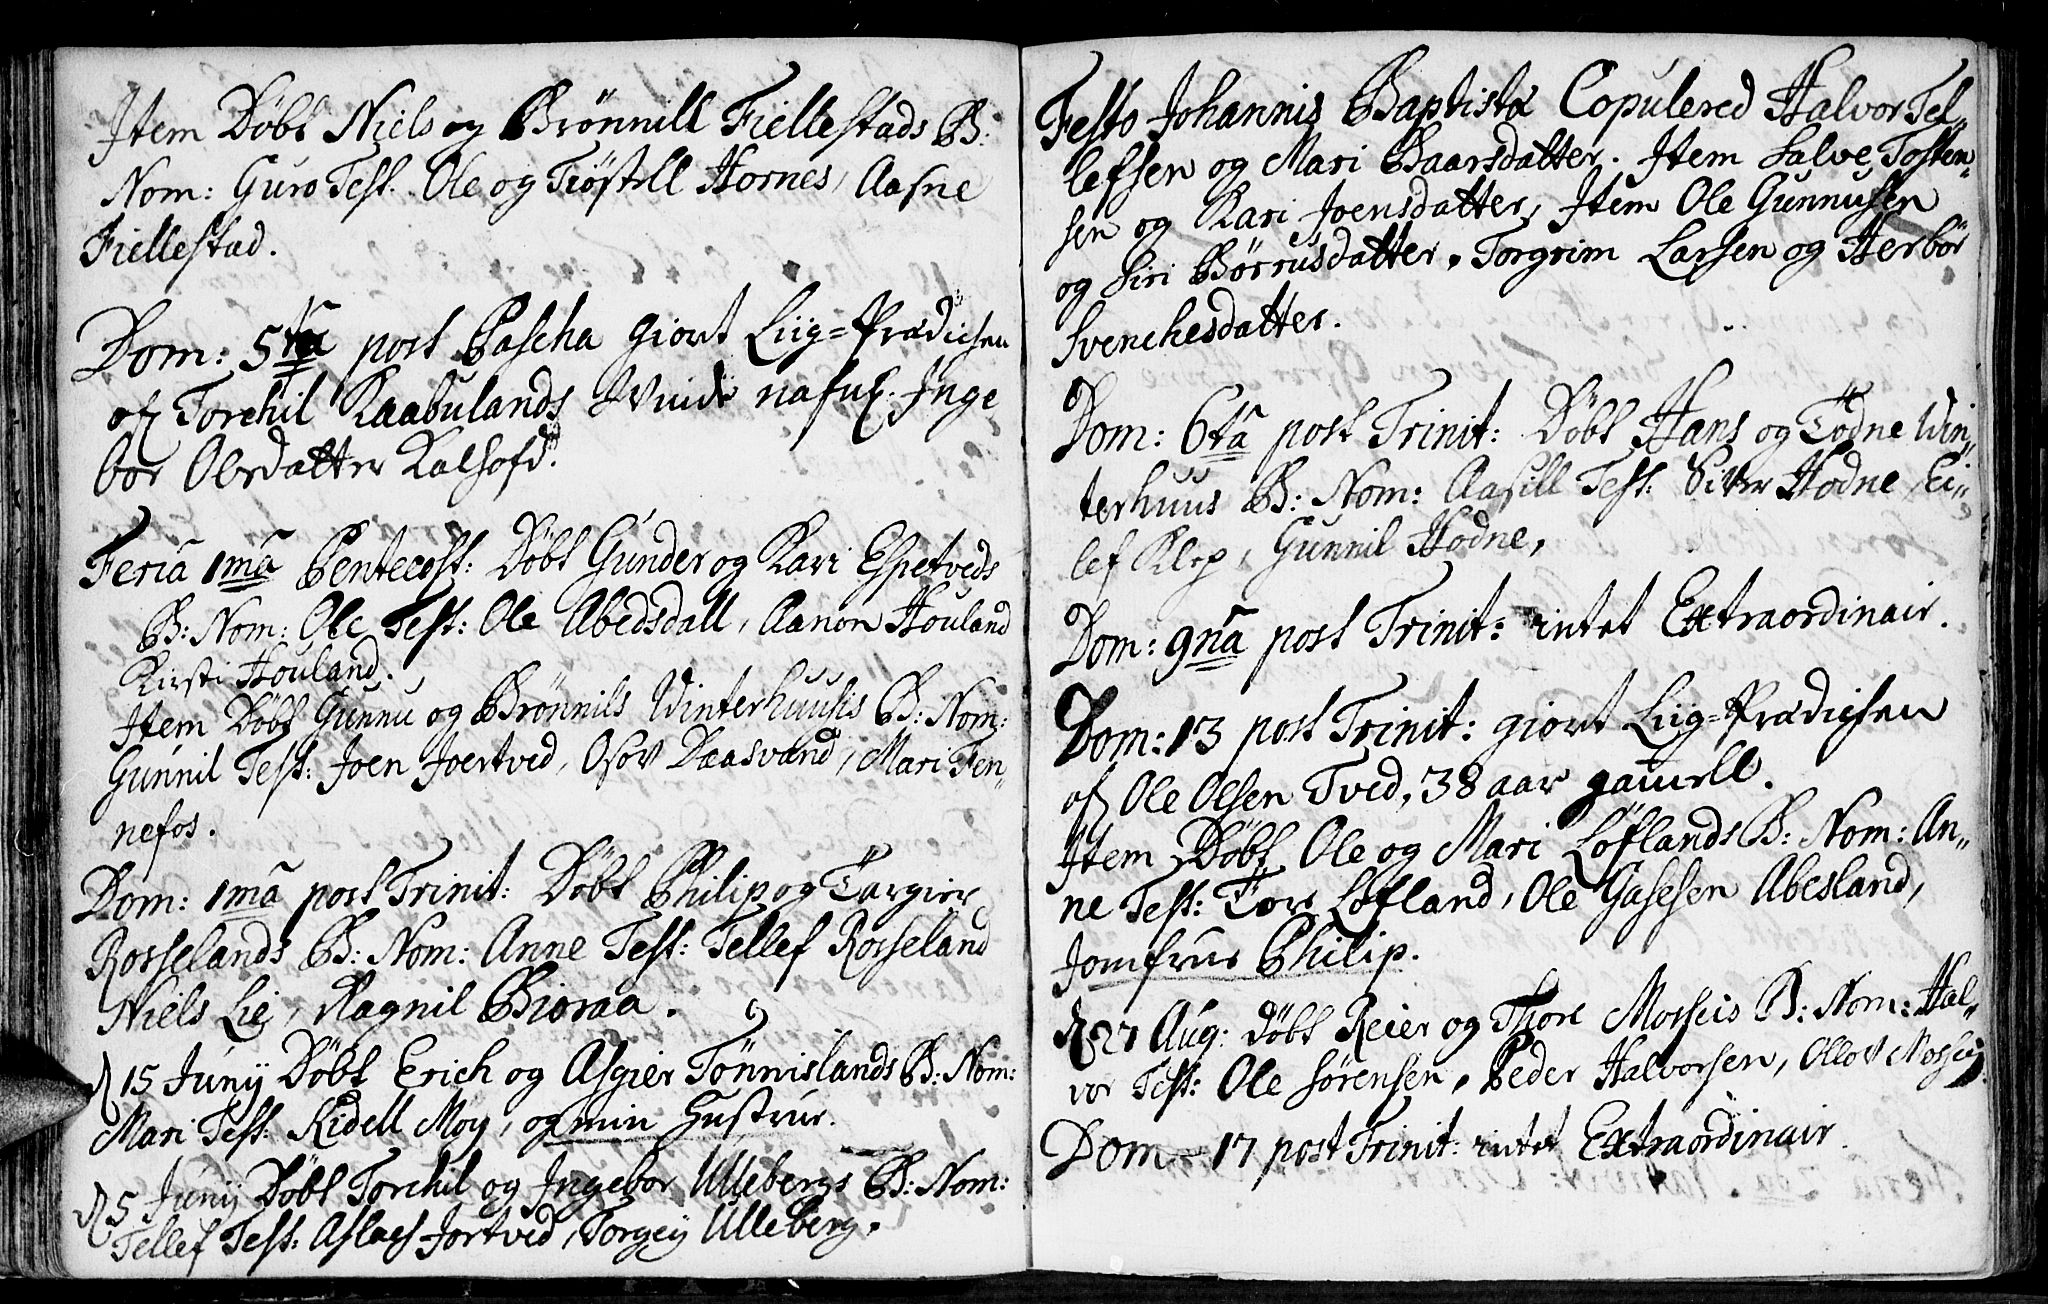 Item Döbt Niels og Brönnill Fiellestads B:
Nom: Guro Test. Ole og Tiöstell Hornes, Aasne
Fiellestad.
Dom: 5ta post Pascha giort Liig=Prædichen
of Torchil Kaabulands Quinde nafnl. Inge
bor Olesdatter Kalhofd.
Feria 1mâ Pentecost: Döbt Gunder og Kari Espetveds
B: Nom: Ole Test: Ole Abedsdall, Aanon Houland
Kirsti Houland.
Item Döbt Gunnu og Brönnils Vinterhuusis B: Nom:
Gunnil Test: Joen Joertved, Osov Daasvand, Mari Fen-
nefos.
Dom: 1mâ post Trinit: Döbt Philip og Targier
Rosselands B: Nom: Anne Test: Tellef Rosseland
Niels Lie, Ragnil Bioraa.
d 15 Junij Döbt Erich og Asgier Tönnislands B: Nom:
Mari Test: Kidell Moy, og min Hustrue.
d 5 Junij Döbt Torchil og Ingebor Ullebergs B: Nom:
Tellef Test: Aslach Jortved, Torgey Ulleberg.
Festo Johannis Baptistæ Copulered Halvor Tel-
lefsen og Mari Baarsdatter. Item Salve Tosten-
sen og Kari Joensdatter, Item Ole Gunnusen
og Siri Börrusdatter, Torgrim Larsen og Herbör
Svenchesdatter.
Dom: 6ta post Trinit: Döbt Hans og Tödne Win-
terhuus B: Nom: Aasill Test: Siver Hodne, Ei-
lef Klep, Gunnil Hodne,
Dom: 9nâ post Trinit: intet Extraordinair.
Dom: 13 post Trinit: giort Liig=Prædichen
of Ole Olsen Tved, 38 aar gamell.
Item Döbt Ole og Mari Löflands B: Nom: An-
ne Test: Tore Löfland, Ole Gasesen Abesland,
Jomfrue Philip.
d 27 Aug: Döbt Reier og Thore Mosseis B: Nom: Hal-
vor Test: Ole Sörensen, Peder Halvorsen, Ollov Mossey
Dom 17 post Trinit: intet Extraordinair.